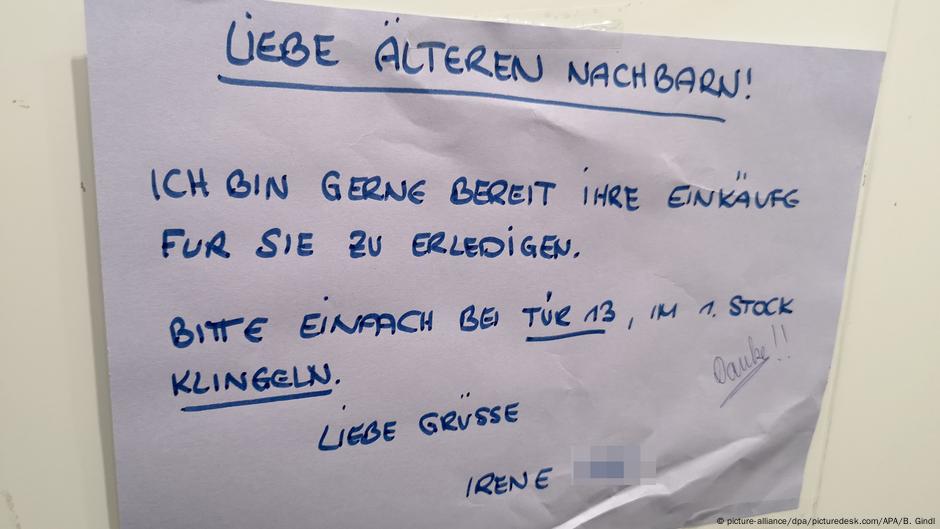 LIEBE ÄLTEREN NACHBARN!
ICH BIN GERNE BEREIT IHRE EINKÄUFE
FUR SIE ZU ERLEDIGEN.
BITTE EINFACH BEI TÜR 13, IM 1. STOCK
Danke!!
KLINGELN.
LIEBE GRÜSSE
IRENE
© picture-alliance/dpa/picturedesk.com/APA/B. Gindl